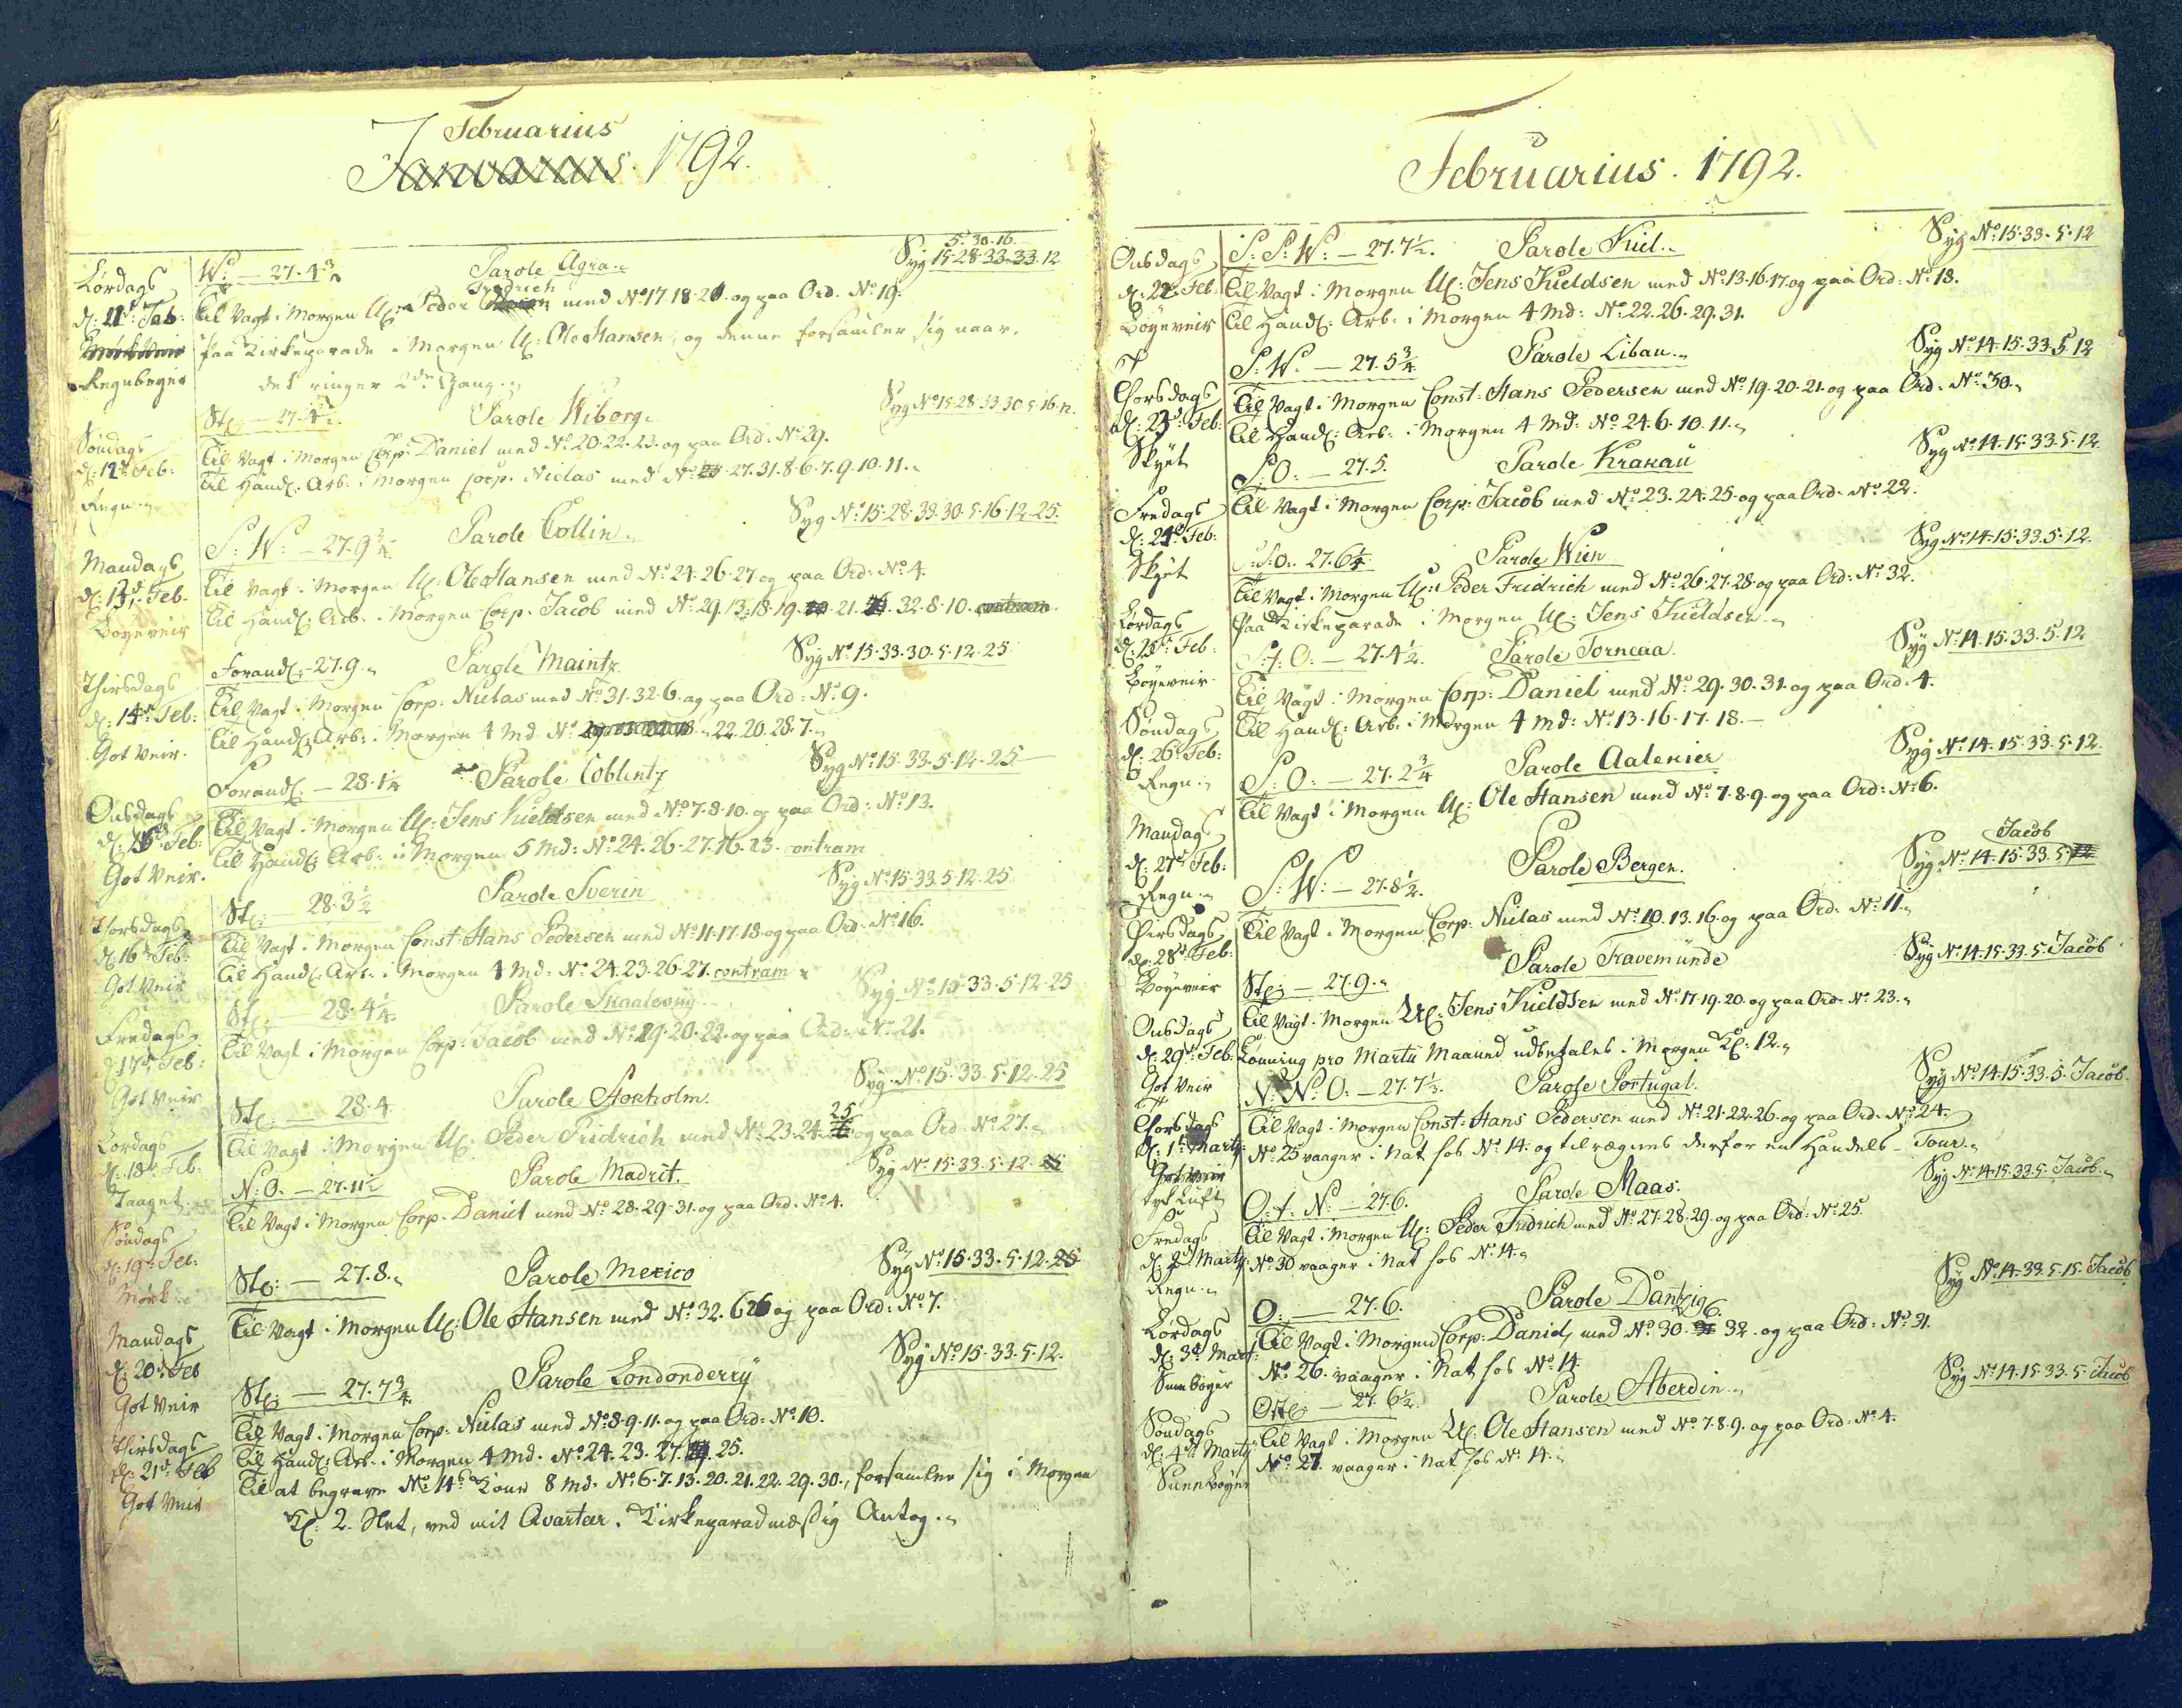 Februarius
Januarius. 1792.
5. 30. 16.
W: — 27. 4 3/4 Parole Agra Syg 15. 28. 33. 33. 12
Lørdags
d: 11t Feb:
Regnbyger
Fredrich
Til Vagt i Morgen Uc: Peder med No 17. 18. 21. og paa Ord. No 19.
Paa Kirkeparade i Morgen Uc: Ole Hansen, og denne forsamler sig naar
det ringer 2den Gang.
Stc: — 27. 4 Parole Wiborg Syg No 15. 28. 33. 30. 5. 16. 12.
Søndags
d: 12t Feb:
Regn
Til Vagt i Morgen Corp: Daniel med No 20. 22. 23. og paa Ord: No 29.
Til Handl: Arb: i Morgen Corp. Niclas med No 25. 27. 31. 8. 6. 7. 9. 10. 11.
S: W: — 27. 9 3/4 Parole Collin Syg No 15. 28. 33. 30. 5. 16. 12. 25.
Mandags
d: 13t Feb.
Bøyeveir
Til Vagt i Morgen Uc: Ole Hansen med No 24. 26. 27 og paa Ord: No 4.
Til Handl: Arb. i Morgen Corp. Jacob med No 29. 13. 18. 19. 21. 32. 8. 10. contram
Forandl: — 27. 9. Parole Maintz Syg No 15. 33. 30. 5. 12. 25
Thirsdags
d: 14t Feb:
Got Veir.
Til Vagt i Morgen Corp. Niclas med No 31. 32. 6. og paa Ord: No 9.
Til Handl: Arb: i Morgen 4 Md No 22. 20. 28. 7.
Forandl: — 28. 1 1/4 Parole Coblintz Syg No 15. 33. 5. 12. 25
Onsdags
d: 15t Feb:
Got Veir.
Til Vagt i Morgen Uc: Jens Kieldsen med No 7. 8. 10. og paa Ord: No 13.
Til Handl: Arb: i Morgen 5 Md: No 24. 26. 27. 16. 23. contram
Stc: — 28. 3 1/2 Parole Sverin Syg No 15. 33. 5. 12. 25
Thorsdags
d: 16t Feb:
Got Veir
Til Vagt i Morgen Const: Hans Pedersen med No 11. 17. 18 og paa Ord: No 16.
Til Handl: Arb: i Morgen 4 Md: No 24. 23. 26. 27. contram
Stc: — 28. 4 1/4 Parole Syg No 15. 33. 5. 12. 25
Fredags
d: 17t Feb:
Got Veir
Til Vagt i Morgen Corp: Jacob med No 19. 20. 22. og paa Ord: No 21.
Stc: — 28. 4 Parole Stokholm. Syg. No 15. 33. 5. 12. 25
Lørdags
d: 18t Feb:
Taaget
25
Til Vagt i Morgen Uc: Peder Fridrich med No 23. 24. og paa Ord: No 27.
N: O. — 27. 11 1/2 Parole Madrit. Syg No 15. 33. 5. 12. 25
Søndags
d: 19t Feb:
Mørk
Til Vagt i Morgen Corp. Daniel med No 28. 29. 31. og paa Ord. No 4.
Stc: — 27. 8. Parole Mexico Syg No 15. 33. 5. 12. 25
Mandags
d: 20t Feb
Got Veir
Til Vagt i Morgen Uc: Ole Hansen med No 32. 6 26 og paa Ord: No 7.
Stc: — 27. 7 3/4 Parole Londonderry Syg No 15. 33. 5. 12.
Thirsdags
d: 21t Feb
Got Veir
Til Vagt i Morgen Corp: Niclas med No 8. 9. 11. og paa Ord: No 10.
Til Handl: Arb. i Morgen 4 Md. No 24. 23. 27. 25.
Til at begrave No 14s Kone 8 Md. No 6. 7. 13. 20. 21. 22. 29. 30., forsamler sig i Morgen
Kl: 2. Slet, ved mit Qvarteer. Kirkeparadmæssig Antog.
Februarius. 1792.
S: S: W: — 27. 7 1/2. Parole Kiel. Syg No 15. 33. 5. 12
Onsdags
d: 22t Feb:
Bøyeveir
Til Vagt i Morgen Uc: Jens Kieldsen med No 13. 16. 17 og paa Ord: No 18.
Til Handl: Arb: i Morgen 4 Md: No 22. 26. 29. 31.
S: W. — 27. 5 3/4 Parole Libau. Syg No 14. 15. 33. 5. 12
Thorsdags
d: 23t Feb:
Skyet
Til Vagt i Morgen Const: Hans Pedersen med No 19. 20. 21. og paa Ord. No 30.
Til Handl: Arb: i Morgen 4 Md: No 24. 6. 10. 11.
S: O: — 27. 5. Parole Krakau Syg No 14. 15. 33. 5. 12.
Fredags
d: 24t Feb:
Skyet
Til Vagt i Morgen Corp: Jacob med No 23. 24. 25. og paa Ord. No 22.
S: O: 27. 6 1/4 Parole Wien Syg No 14. 15. 33. 5. 12.
Lørdags
d: 25t Feb:
Bøyeveir
Til Vagt i Morgen Uc: Peder Fridrich med No 26. 27. 28. og paa Ord: No 32.
Paa Kirkeparade i Morgen Uc: Jens Kieldsen.
S: t: O: — 27. 4 1/2. Parole Torneaa. Syg No 14. 15. 33. 5. 12
Søndags
d: 26t Feb:
Regn
Til Vagt i Morgen Corp: Daniel med No 29. 30. 31. og paa Ord. 4.
Til Handl: Arb. i Morgen 4 Md: No 13. 16. 17. 18.
S: O: — 27. 2 3/4 Parole Syg No 14. 15. 33. 5. 12.
Mandags
d: 27t Feb:
Regn
Til Vagt i Morgen Uc: Ole Hansen med No 7. 8. 9. og paa Ord: No 6.
Jacob
S: W: — 27. 8 1/2. Parole Bergen. Syg No 14. 15. 33. 5. 12
Thirsdags
d: 28t Feb:
Bøyeveir
Til Vagt i Morgen Corp. Niclas med No 10. 13. 16. og paa Ord: No 11.
Stc: — 27. 9. Parole Travemünde Syg No 14. 15. 33. 5. Jacob
Onsdags
d: 29t Feb:
Got Veir
Til Vagt i Morgen Uc: Jens Kieldsen med No 17. 19. 20. og paa Ord. No 23.
Lønning pro Martii Maaned udbetales i Morgen Kl: 12.
N: N: O. — 27. 7 1/2. Parole Portugal. Syg No 14. 15. 33. 5. Jacob.
Thorsdags
d: 1t Marty
Got Veir
tyk Luft
Til Vagt i Morgen Const: Hans Pedersen med No 21. 22. 26. og paa Ord. No 24.
No 25 vaager i Nat hos No 14. og tilregnes derfor en Handels-Tour.
O: t: N: — 27. 6. Parole Maas. Syg No 14. 15. 33. 5. Jacob.
Fredags
d: 2t Marty
Regn
Til Vagt i Morgen Uc: Peder Fridrich med No 27. 28. 29. og paa Ord: No 25.
No 30 vaager i Nat hos No 14.
O: — 27. 6. Parole Dantzig Syg No 14. 33. 5. 15. Jacob
Lørdags
d: 3t Mart:
6.
Til Vagt i Morgen Corp: Daniel, med No 30. 32. og paa Ord: No 31.
No 26. vaager i Nat hos No 14
Ostc: — 27. 6 1/2. Parole Aberdin. Syg No 14. 15. 33. 5. Jacob
Søndags
d: 4t Marty
Til Vagt i Morgen Uc: Ole Hansen med No 7. 8. 9. og paa Ord: No 4.
No 27. vaager i Nat hos No 14.